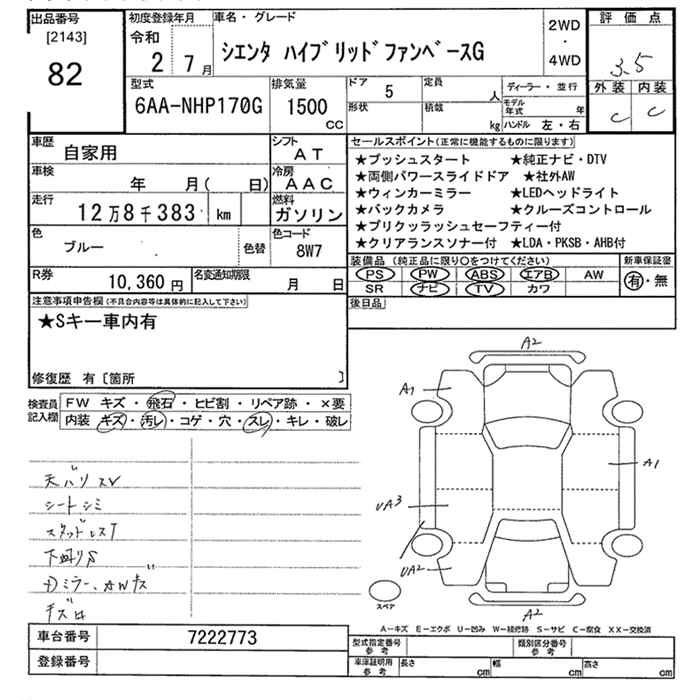 出品番号
[2143]
82
初度登録年月
令和
2 7月
車名・グレード
シエンタ ハイブリッドファンベースG
2WD
・
4WD
評価点
3.5
外装 内装
C C
型式
6AA-NHP170G
排気量
1500
CC
ドア 5
形状
定員 人
積載 kg
ディーラー・並行
モデル年式 年
ハンドル 左・右
車歴
自家用
シフト
AT
車検
年 月( 日)
冷房
AAC
走行
12万8千383 km
燃料
ガソリン
色
ブルー
色替
色コード
8W7
R券
10,360円
名変通知期限
月 日
セールスポイント(正常に機能するものに限ります)
★プッシュスタート ★純正ナビ・DTV
★両側パワースライドドア ★社外AW
★ウィンカーミラー ★LEDヘッドライト
★バックカメラ ★クルーズコントロール
★プリクッラッシュセーフティー付
★クリアランスソナー付 ★LDA・PKSB・AHB付
装備品(純正品に限り○をつけてください)
新車保証書
PS PW ABS エアB AW
SR ナビ TV カワ
有・無
後日品
注意事項申告欄(不具合内容等は具体的に記入して下さい)
★Sキー車内有
修復歴 有〔箇所 〕
検査員記入欄
FW キズ・飛石・ヒビ割・リペア跡・×要
内装 キズ・汚レ・コゲ・穴・スレ・キレ・破レ
天バリスレ
シートシミ
スタッドレスT
下廻りS
Dミラー、AWキズ
A2
A1
A1
UA3
UA2
A2
スペア
A－キズ E－エクボ U－凹み W－補修跡 S－サビ C－腐食 XX－交換済
車台番号
7222773
登録番号
型式指定番号
参考
類別区分番号
参考
車庫証明用
参考
長さ cm
幅 cm
高さ cm